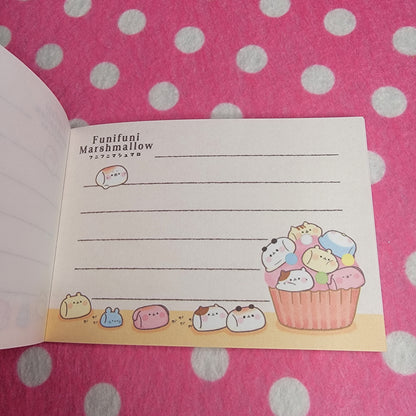 Funifuni
Marshmallow
フニフニマシュマロ